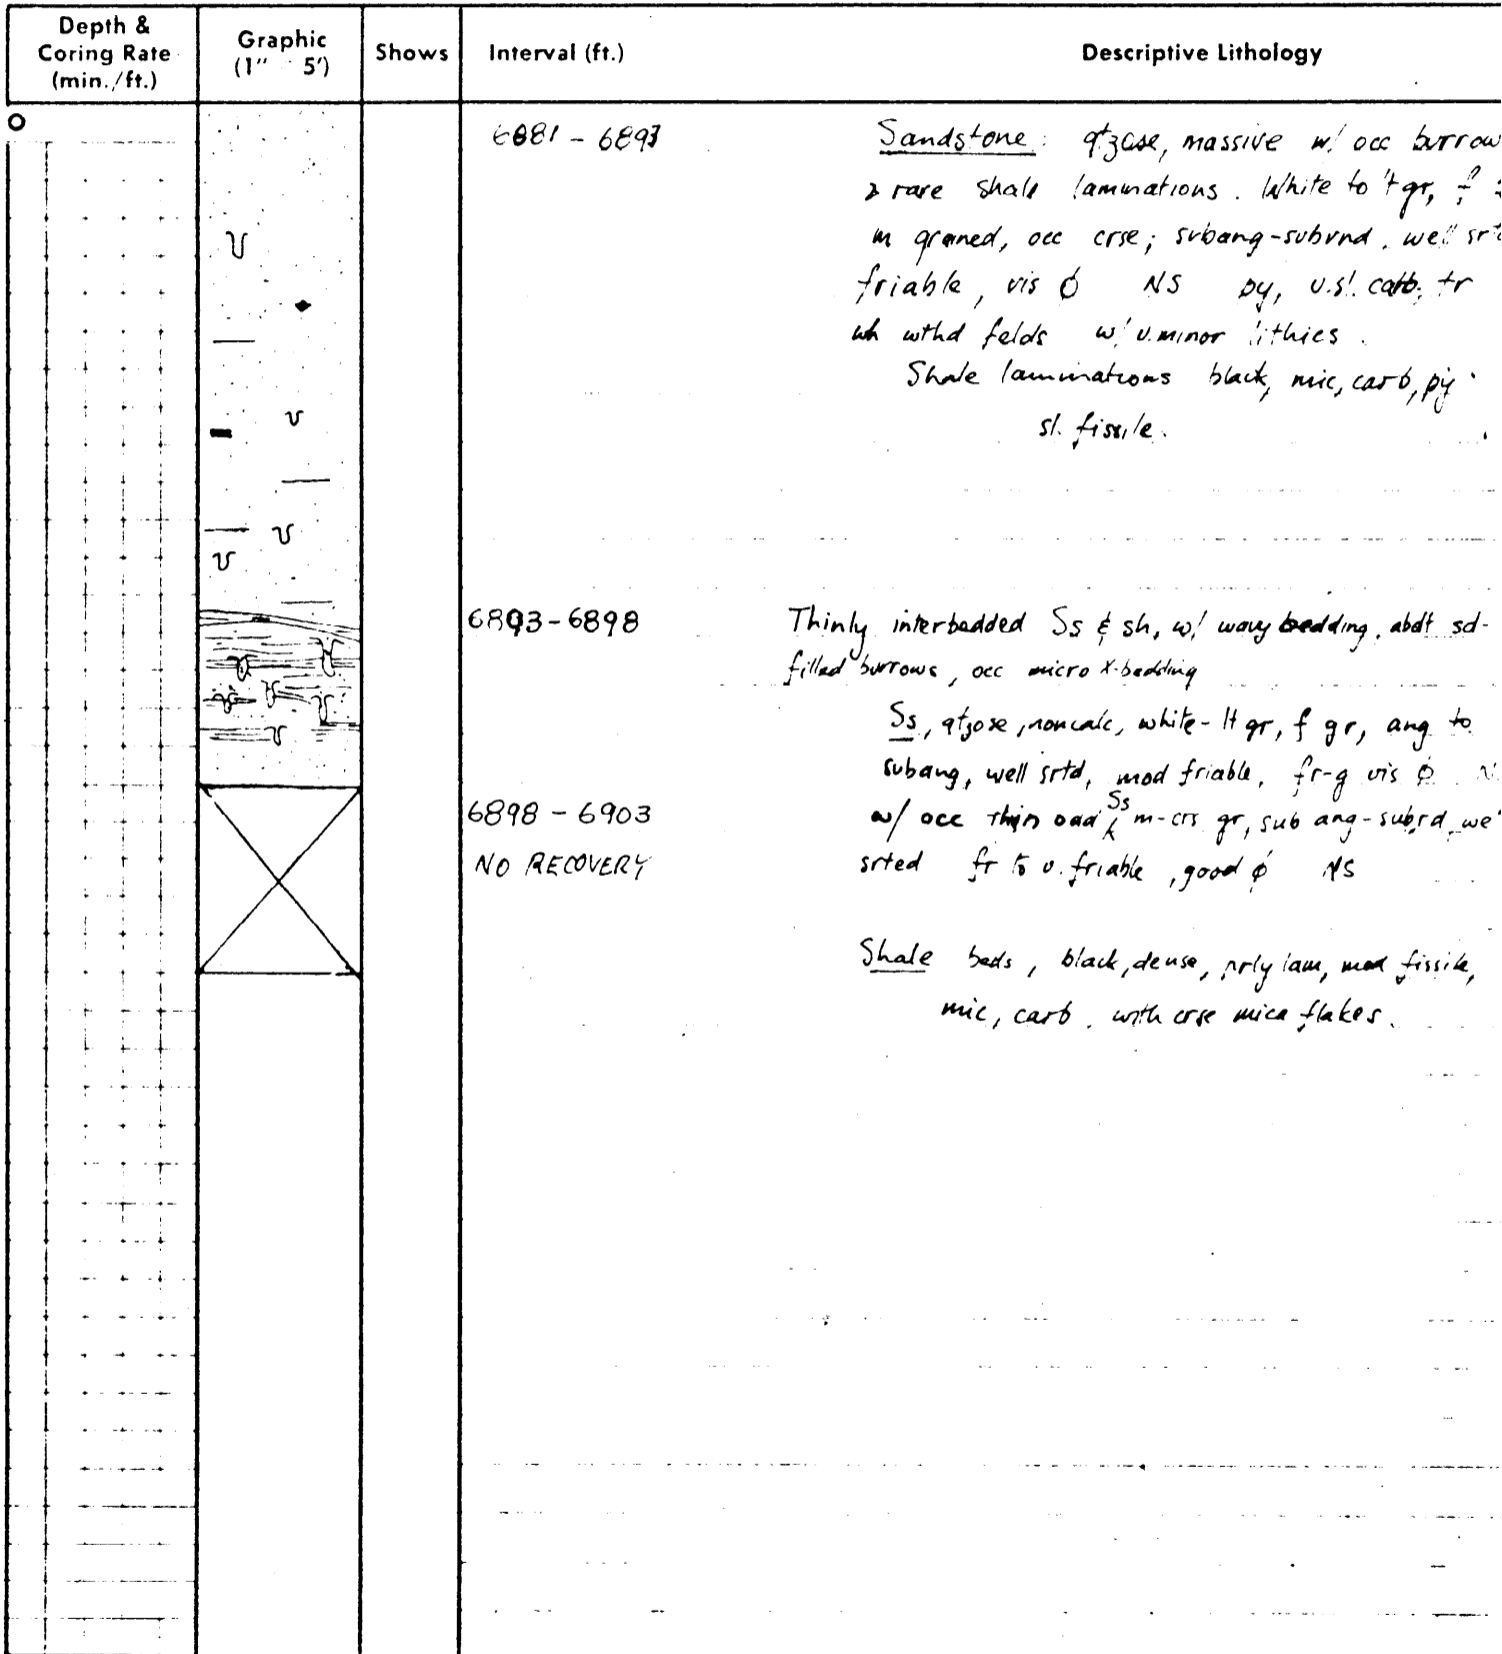 Depth &
Coring Rate
(min./ft.)
Graphic
(1" 5')
Shows
Interval (ft.)
Descriptive Lithology
0
6881 - 6893
Sandstone: qtzose, massive w/ occ burrow
& rare shale laminations. White to lt gr, f
m grained, occ crse; subang-subrnd, well srtd
friable, vis ϕ NS py, v.sl. carb, tr
wh wthd felds w/ v.minor lithics.
Shale laminations black, mic, carb, py
sl. fissile.
6893-6898
Thinly interbedded Ss & sh, w/ wavy bedding, abdt sd-
filled burrows, occ micro x-bedding
Ss, qtzose, noncalc, white-lt gr, f gr, ang to
subang, well srtd, mod friable, fr-g vis ϕ
6898 - 6903
w/ occ thin Ss m-crs gr, sub ang-subrd, we
NO RECOVERY
srted fr to v. friable, good ϕ NS
Shale beds, black, dense, prly lam, mod fissile,
mic, carb. with crse mica flakes.